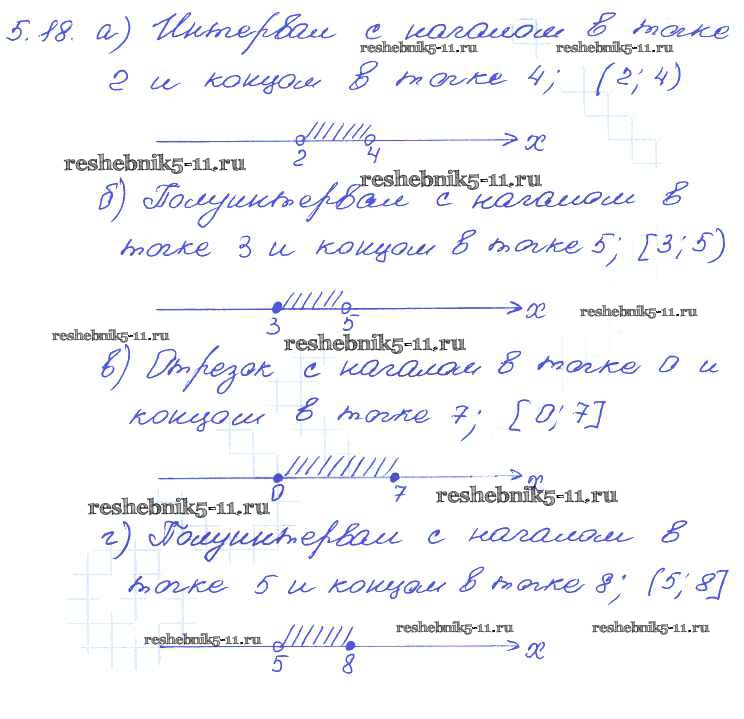 5.18. а) Интервал с началом в точке
reshebnik5-11.ru reshebnik5-11.ru
2 и концом в точке 4; (2; 4)
2 4 x
reshebnik5-11.ru
reshebnik5-11.ru
б) Полуинтервал с началом в
точке 3 и концом в точке 5; [3; 5)
3 5 x
reshebnik5-11.ru
reshebnik5-11.ru
reshebnik5-11.ru
в) Отрезок с началом в точке 0 и
концом в точке 7; [0; 7]
0 7 x
reshebnik5-11.ru
reshebnik5-11.ru
г) Полуинтервал с началом в
точке 5 и концом в точке 8; (5; 8]
reshebnik5-11.ru reshebnik5-11.ru
reshebnik5-11.ru
5 8 x